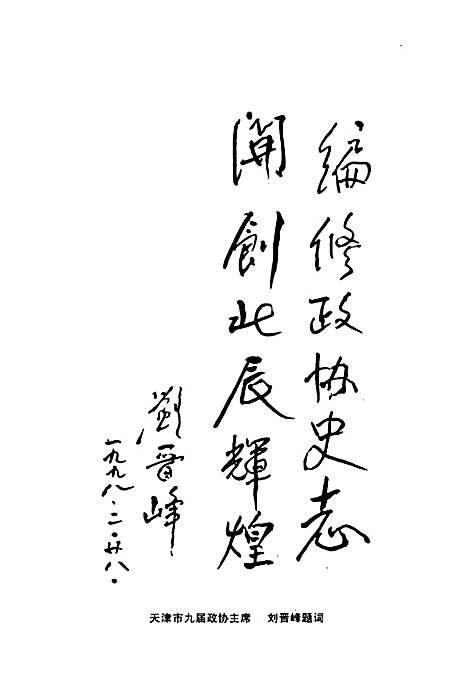 编修政协史志
開創北辰輝煌
劉晋峰
一九九八.二.廿八.
天津市九届政协主席 刘晋峰题词